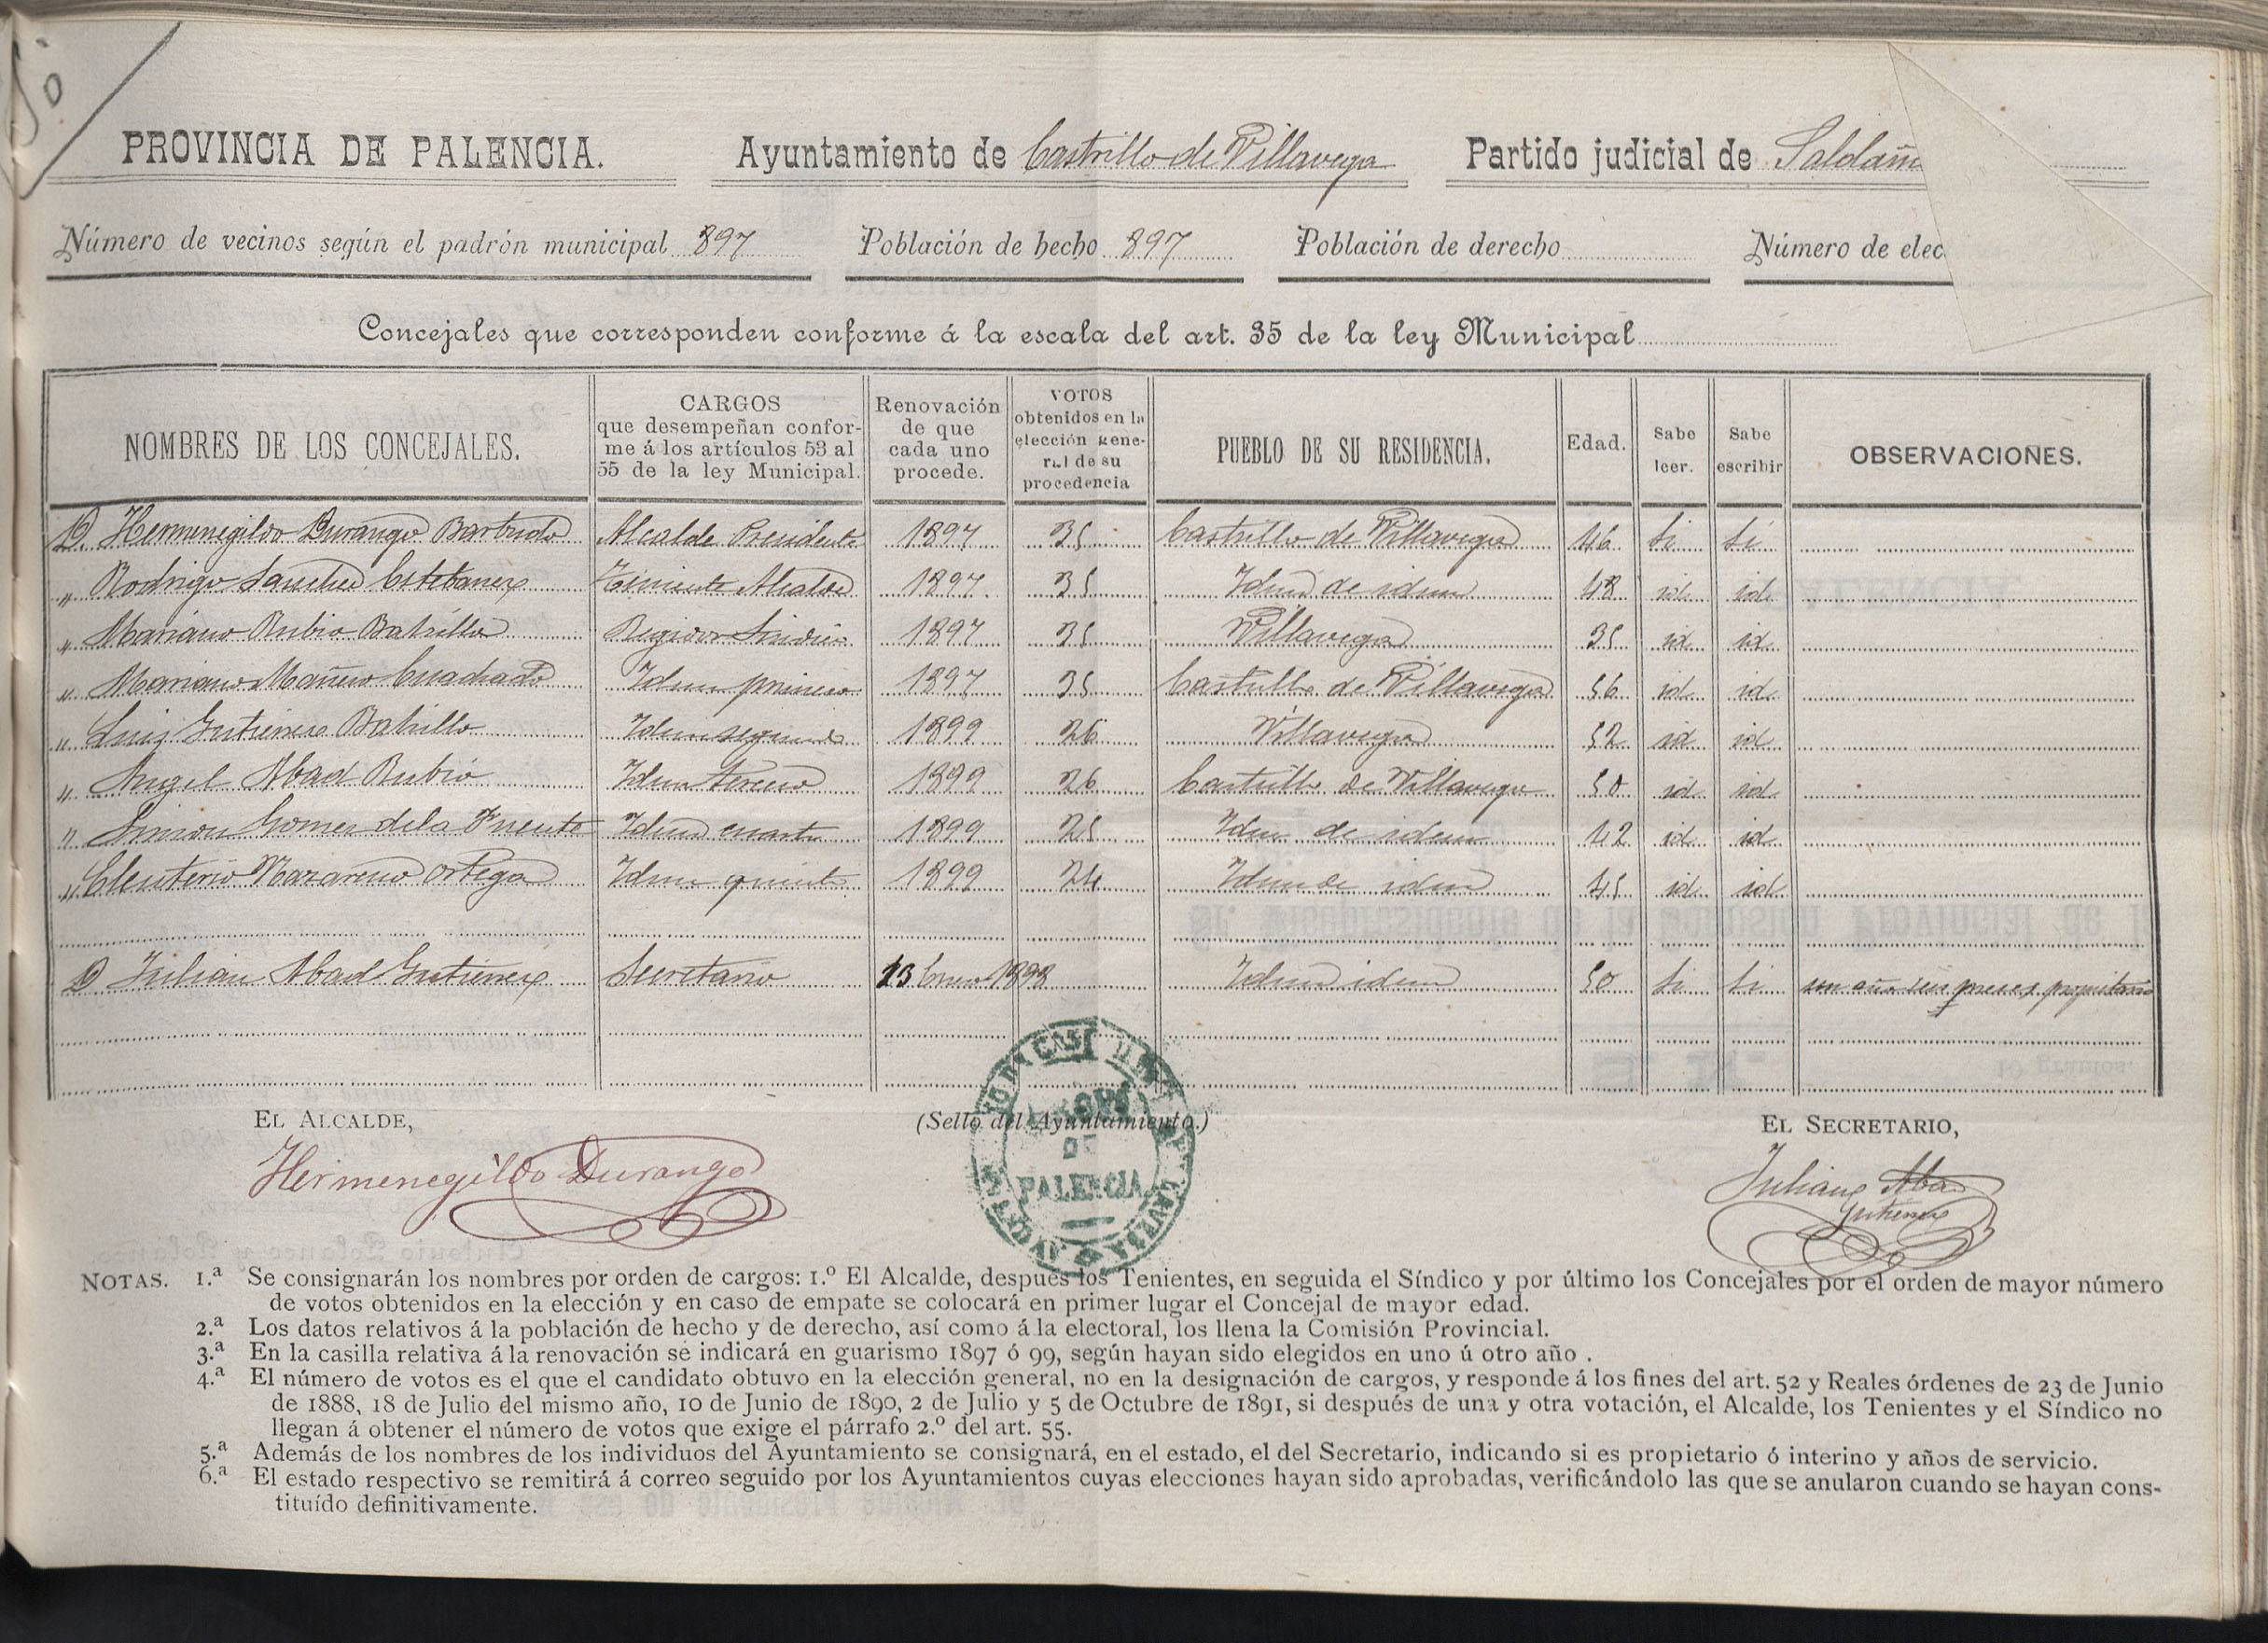 50
PROVINCIA DE PALENCIA. Ayuntamiento de Castrillo de Villavega Partido judicial de Saldañ
Número de vecinos según el padrón municipal 897 Población de hecho 897 Población de derecho Número de elec
Concejales que corresponden conforme á la escala del art. 35 de la ley Municipal
NOMBRES DE LOS CONCEJALES. CARGOS que desempeñan confor-me á los artículos 53 al 55 de la ley Municipal. Renovación de que cada uno procede. VOTOS obtenidos en la elección gene-ral de su procedencia PUEBLO DE SU RESIDENCIA. Edad. Sabe leer. Sabe escribir OBSERVACIONES.
D. Hermenegildo Durango Bartudo Alcalde Presidente 1897 35 Castrillo de Villavega 46 Si Si
" Rodrigo Sanchez Estebanez Teniente Alcalde 1897 35 Idem de idem 48 id id
" Mariano Rubio Batrillo Regidor Sindico 1897 35 Villavega 35 id id
" Mariano Mañero Cuadrado Idem primero 1897 35 Castrillo de Villavega 56 id id
" Luis Gutierrez Batrillo Idem segundo 1899 26 Villavega 52 id id
" Angel Abad Rubio Idem tercero 1899 26 Castrillo de Villavega 50 id id
" Simon Gomez de la Fuente Idem cuarto 1899 25 Idem de idem 42 id id
" Eleuterio Nazareno Ortega Idem quinto 1899 24 Idem de idem 45 id id
D Julian Abad Gutierrez Secretario 13 Enero 1898 Idem idem 50 Si Si un año seis meses propietario
EL ALCALDE, (Sello del Ayuntamiento.) EL SECRETARIO,
Hermenegildo Durango
PALENCIA
Julian Abad
Gutierrez
NOTAS. 1.ª Se consignarán los nombres por orden de cargos: 1.º El Alcalde, despues los Tenientes, en seguida el Síndico y por último los Concejales por el orden de mayor número
de votos obtenidos en la elección y en caso de empate se colocará en primer lugar el Concejal de mayor edad.
2.ª Los datos relativos á la población de hecho y de derecho, así como á la electoral, los llena la Comisión Provincial.
3.ª En la casilla relativa á la renovación se indicará en guarismo 1897 ó 99, según hayan sido elegidos en uno ú otro año .
4.ª El número de votos es el que el candidato obtuvo en la elección general, no en la designación de cargos, y responde á los fines del art. 52 y Reales órdenes de 23 de Junio
de 1888, 18 de Julio del mismo año, 10 de Junio de 1890, 2 de Julio y 5 de Octubre de 1891, si después de una y otra votación, el Alcalde, los Tenientes y el Síndico no
llegan á obtener el número de votos que exige el párrafo 2.º del art. 55.
5.ª Además de los nombres de los individuos del Ayuntamiento se consignará, en el estado, el del Secretario, indicando si es propietario ó interino y años de servicio.
6.ª El estado respectivo se remitirá á correo seguido por los Ayuntamientos cuyas elecciones hayan sido aprobadas, verificándolo las que se anularon cuando se hayan cons-
tituído definitivamente.